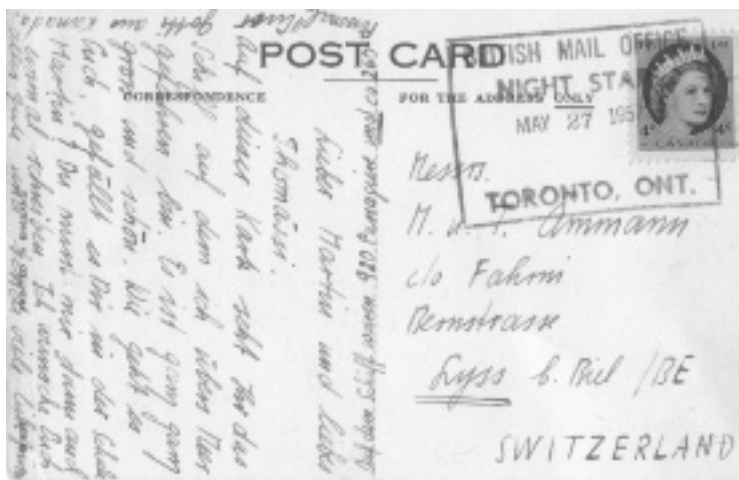 POST CARD
CORRESPONDENCE
FOR THE ADDRESS ONLY
BRITISH MAIL OFFICE
NIGHT STA
MAY 27 195
TORONTO, ONT.
CANADA
4¢ 4¢
Messrs.
M. u. T. Ammann
c/o Fahrni
Bernstrasse
Lyss b. Biel /BE
SWITZERLAND
Lieber Martin und lieber
Auf dieser Karte seht Ihr das
Schiff auf dem ich übers Meer
gefahren bin. Es ist ganz ganz
gross und schön. Wie geht es
Euch, gefällt es Dir in der Schule
Martin? Du musst mir dann auch
einmal schreiben. Ich wünsche Euch
alles gute viele
Euer Götti aus Kanada